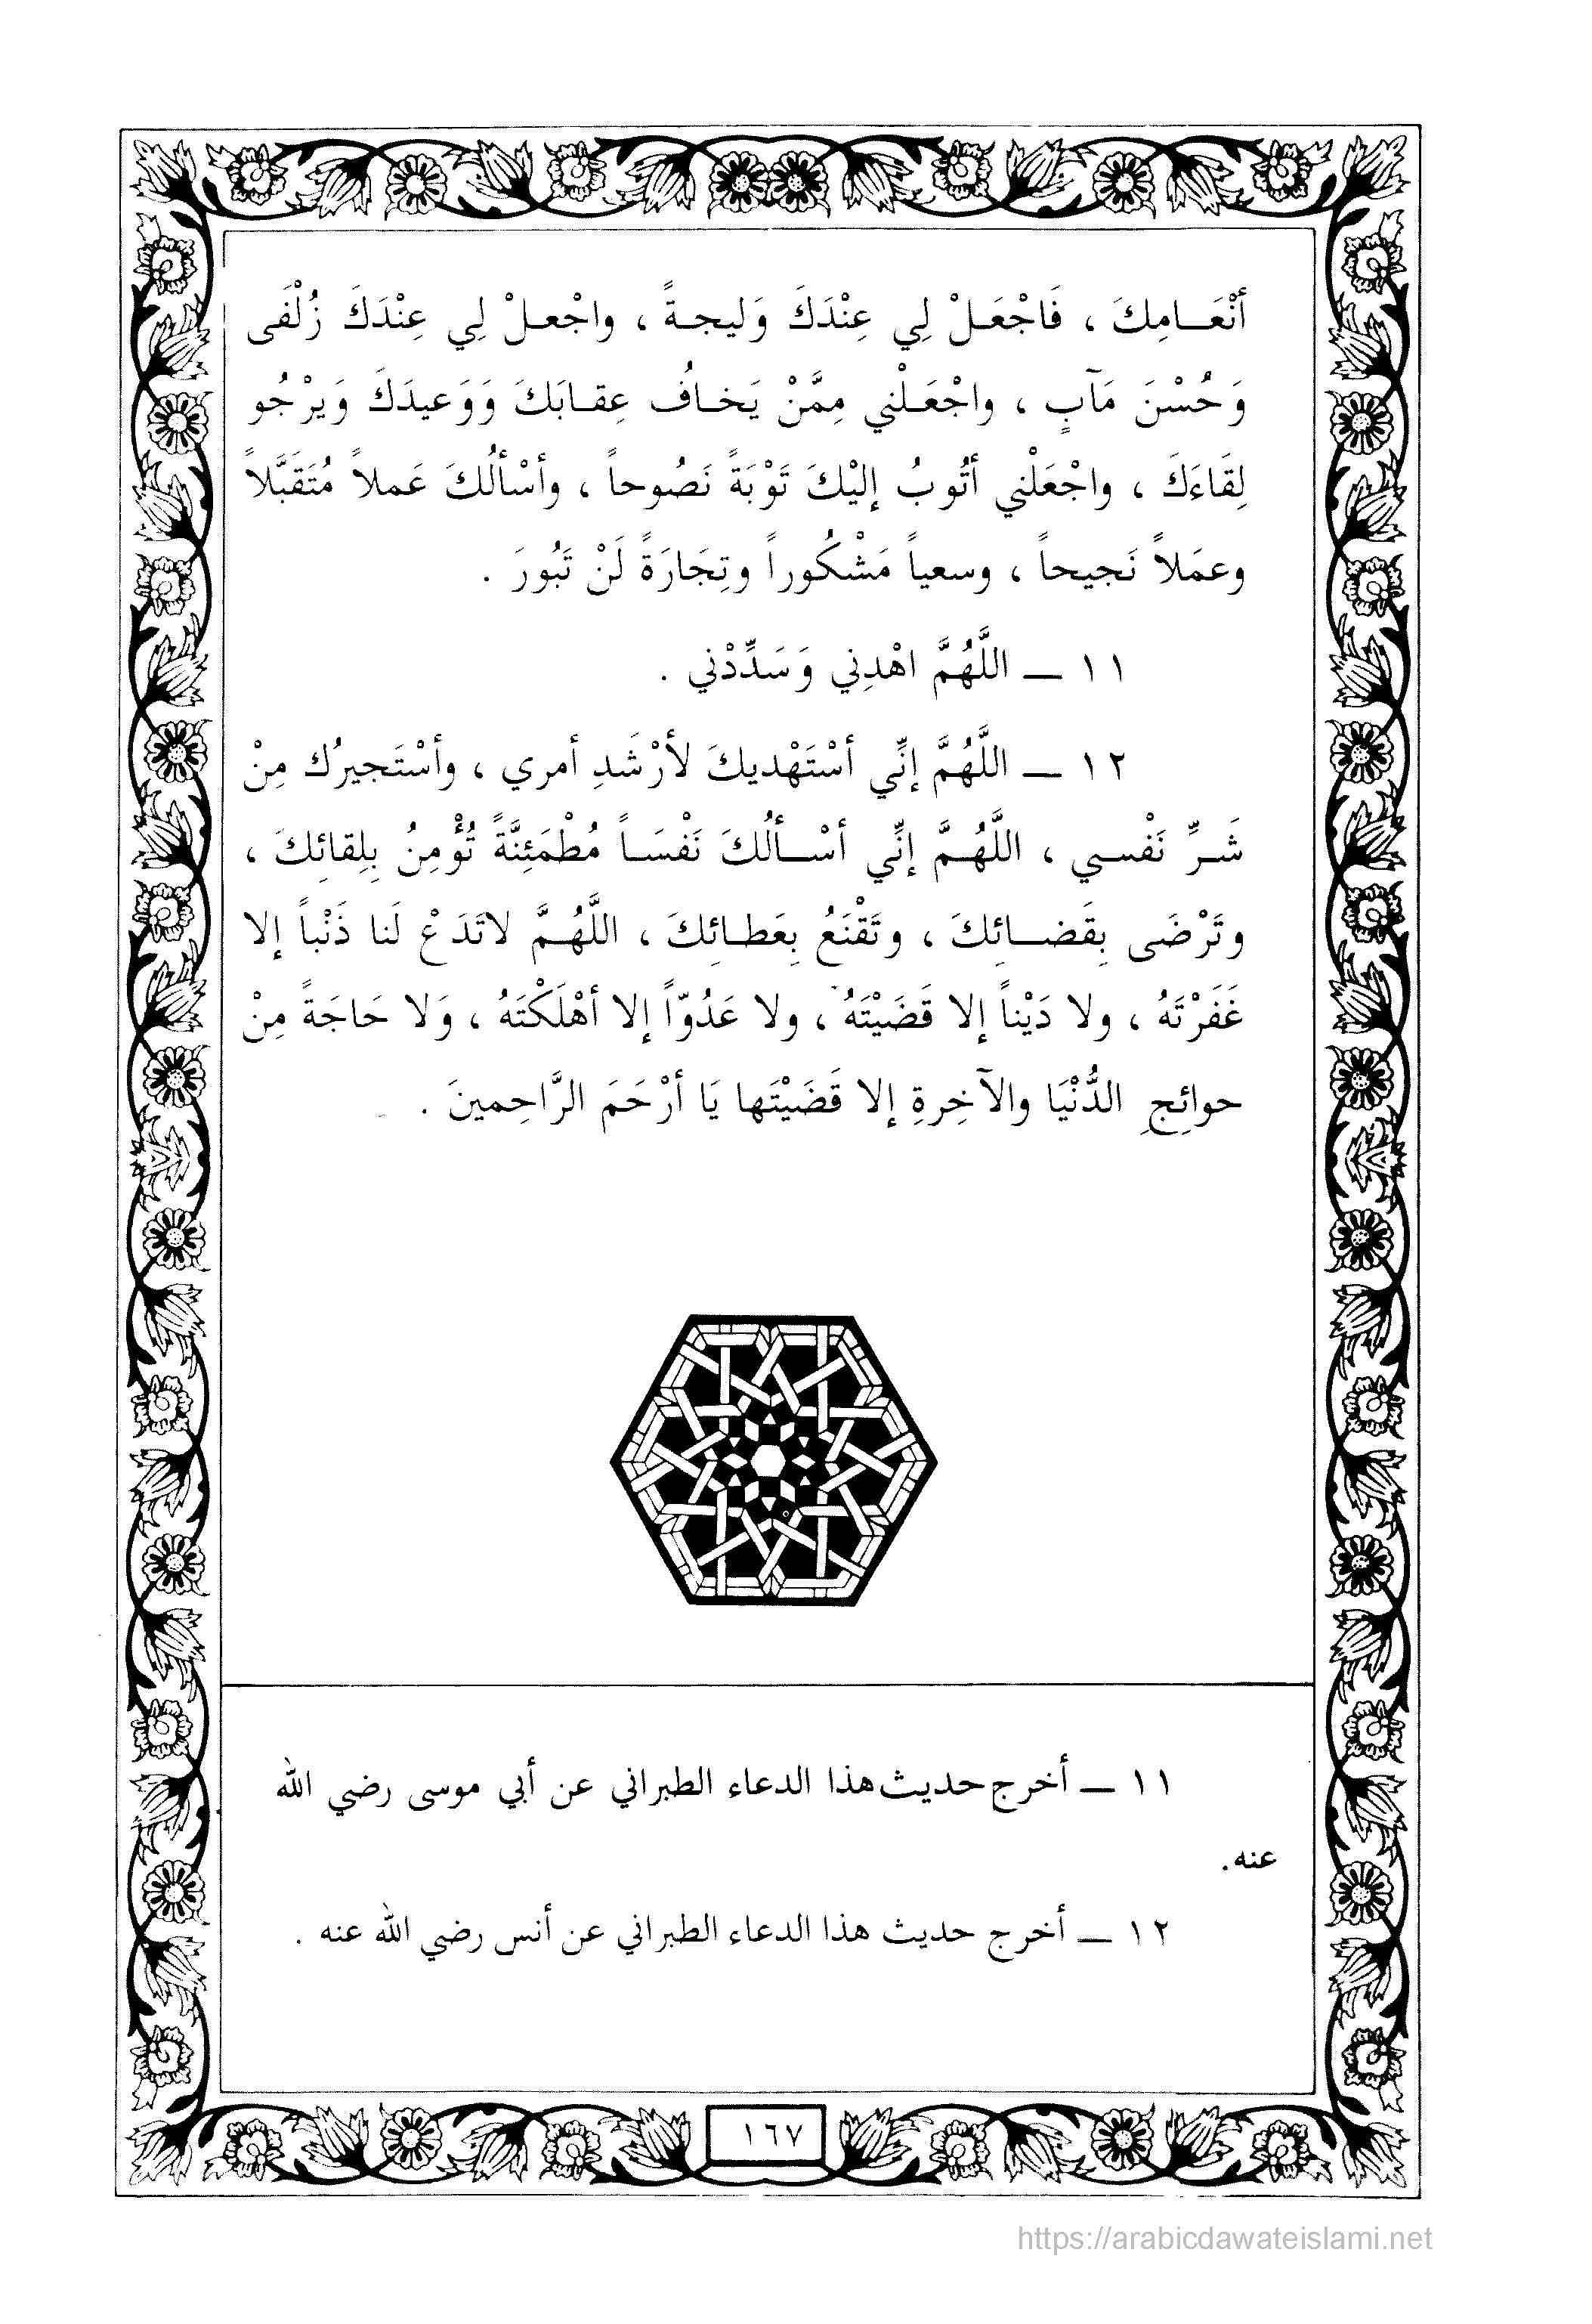 أنْعَـامِكَ ، فَاجْعَـلْ لِي عِنْدَكَ وَليجـةً ، واجْعـلْ لِي عِنْدَكَ زُلْفَى
وَحُسْنَ مَآبٍ ، واجْعَـلْني مِمَّنْ يَخـافُ عِقـابَكَ وَوَعيدَكَ وَيرْجُو
لِقَاءَكَ ، واجْعَلْني أتُوبُ إليْكَ تَوْبَةً نَصُوحاً ، وأسْألُكَ عَملاً مُتَقَبَّلاً
وعمَلاً نَجيحاً ، وسعياً مَشْكُوراً وتِجَارَةً لَنْ تَبُورَ .
١١ ــ اللَّهُمَّ اهْدِني وَسَدِّدْني .
١٢ ــ اللَّهُمَّ إنِّي أسْتَهْديكَ لأرْشَدِ أمري ، وأسْتَجيرُك مِنْ
شَـرِّ نَفْسـي ، اللَّهُـمَّ إنِّي أسْـألُكَ نَفْسَـاً مُطْمَئِنَّةً تُؤْمِنُ بِلِقائِكَ ،
وتَرْضَى بِقَضـائِكَ ، وتَقْنَعُ بِعَطـائِكَ ، اللَّهُـمَّ لاتَدَعْ لَنا ذَنْباً إلا
غَفَرْتَهُ ، ولا دَيْناً إلا قَضَيْتَهُ ، ولا عَدُوّاً إلا أهْلَكْتَهُ ، وَلا حَاجَةً مِنْ
حوائِجِ الدُّنْيَا والآخِرةِ إلا قَضَيْتَها يَا أرْحَمَ الرَّاحِمينَ .
١١ ــ أخرج حديث هذا الدعاء الطبراني عن أبي موسى رضي الله
عنه.
١٢ ــ أخرج حديث هذا الدعاء الطبراني عن أنس رضي الله عنه .
١٦٧
https://arabicdawateislami.net